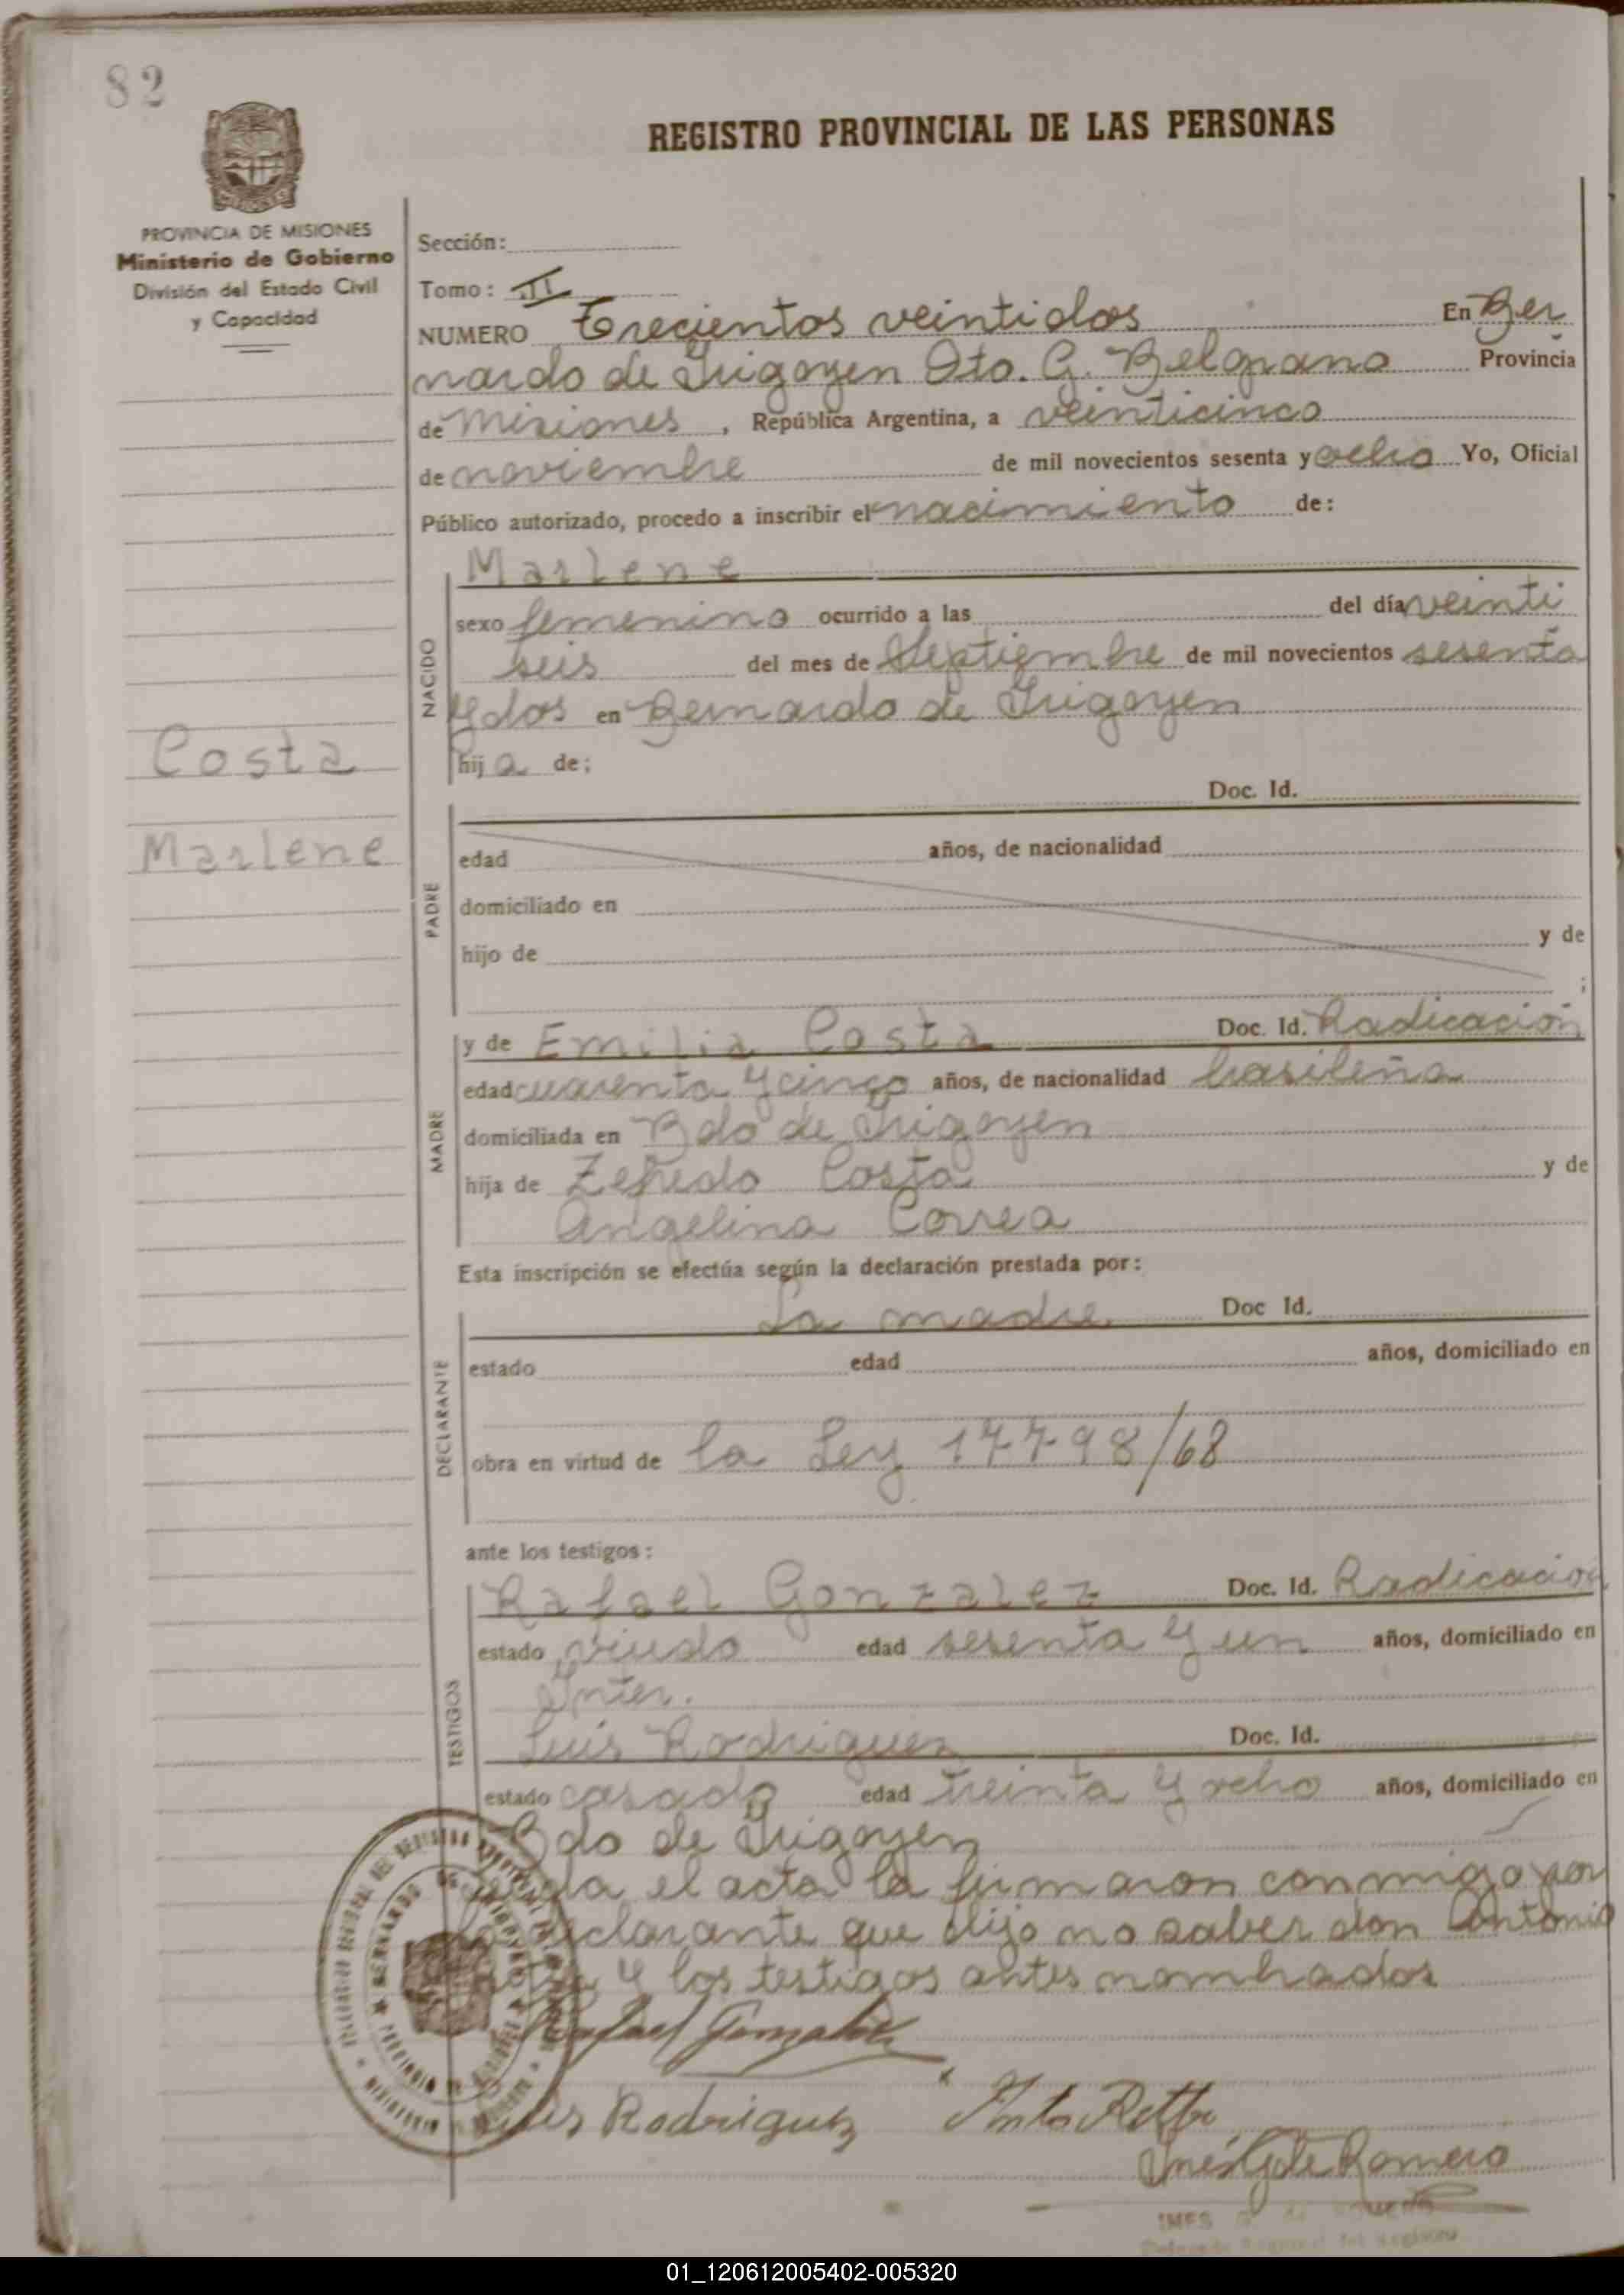 82
REGISTRO PROVINCIAL DE LAS PERSONAS
PROVINCIA DE MISIONES
Ministerio de Gobierno
División del Estado Civil
y Capacidad
Sección:
Tomo: II
NUMERO Trecientos veintidos En Ber
nardo de Irigoyen Dto. G. Belgrano Provincia
de Misiones, República Argentina, a veinticinco
de noviembre de mil novecientos sesenta y ocho Yo, Oficial
Público autorizado, procedo a inscribir el nacimiento de:
Marlene
NACIDO
sexo femenino ocurrido a las del día veinti
seis del mes de Septiembre de mil novecientos sesenta
y dos en Bernardo de Irigoyen
hija de;
Costa
Marlene
Doc. Id.
PADRE
edad años, de nacionalidad
domiciliado en
hijo de y de
;
MADRE
y de Emilia Costa Doc. Id. Radicación
edad cuarenta y cinco años, de nacionalidad brasileña
domiciliada en Bdo de Irigoyen
hija de Costa y de
Angelina Correa
Esta inscripción se efectúa según la declaración prestada por:
DECLARANTE
La madre Doc Id.
estado edad años, domiciliado en
obra en virtud de la Ley 17798/68
ante los testigos:
TESTIGOS
Rafael Gonzalez Doc. Id. Radicación
estado viudo edad sesenta y un años, domiciliado en
Inter.
Luis Rodriguez Doc. Id.
estado casado edad treinta y ocho años, domiciliado en
Bdo de Irigoyen
el acta la firmaron conmigo por
declarante que dijo no saber don Antonio
y los testigos antes nombrados
Rafael Gonzalez
Luis Rodriguez
Inés G de Romero
INES G. de ROMERO
01_120612005402-005320